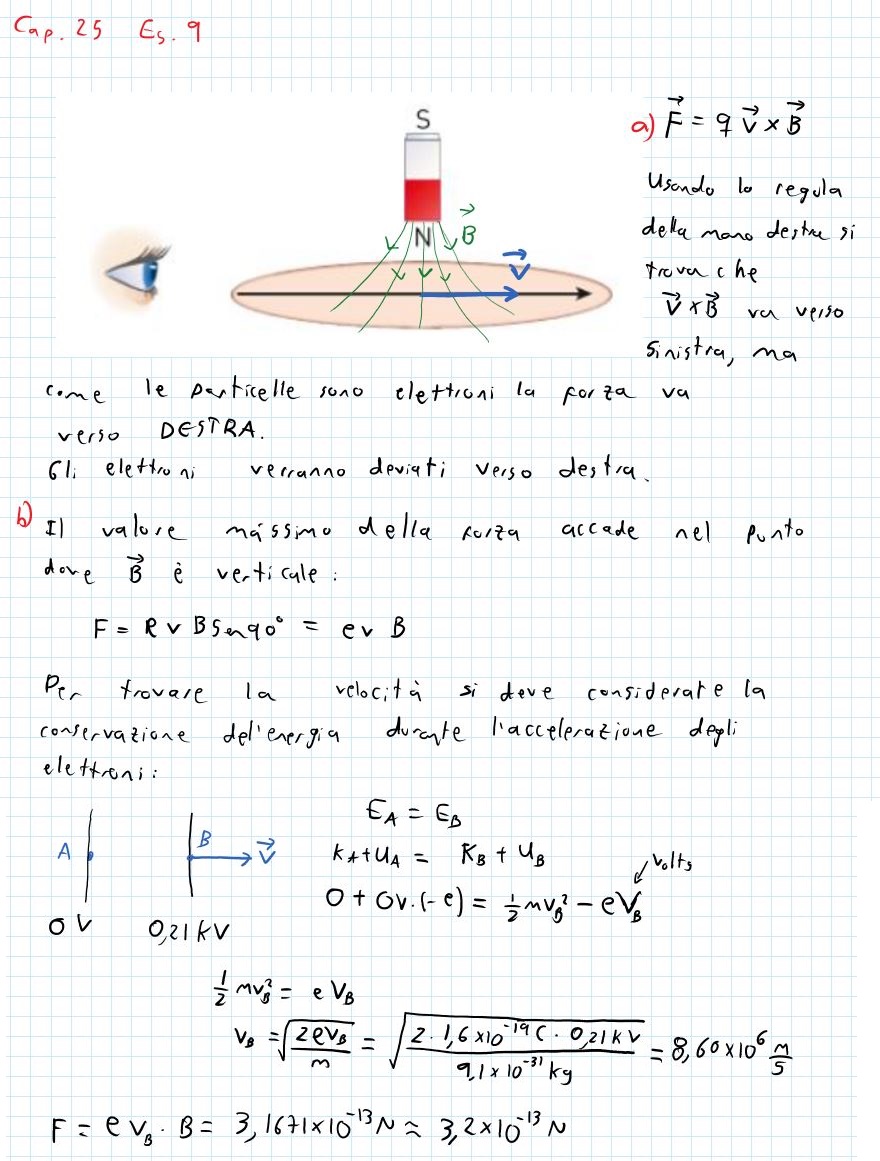 Cap. 25 Es. 9
S
N
B
V
a) F = q V x B
Usando la regula
della mano destra si
trova che
V x B va verso
sinistra, ma
come le particelle sono elettroni la forza va
verso DESTRA.
Gli elettroni verranno deviati verso destra.
b) Il valore mássimo della forza accade nel punto
dove B è verticale :
F = e v B Sen90° = ev B
Per trovare la velocità si deve considerate la
conservazione del'energia durante l'accelerazione degli
elettroni:
A
B
V
0 V
0,21 kV
EA = EB
KA + UA = KB + UB
Volts
0 + 0V.(-e) = 1/2 mvB² - eVB
1/2 mvB² = e VB
VB = √(2eVB/m) = √(2 · 1,6 x10⁻¹⁹ C · 0,21 kV / 9,1 x 10⁻³¹ kg) = 8,60 x10⁶ m/s
F = e vB · B = 3,1671x10⁻¹³ N ≈ 3,2x10⁻¹³ N